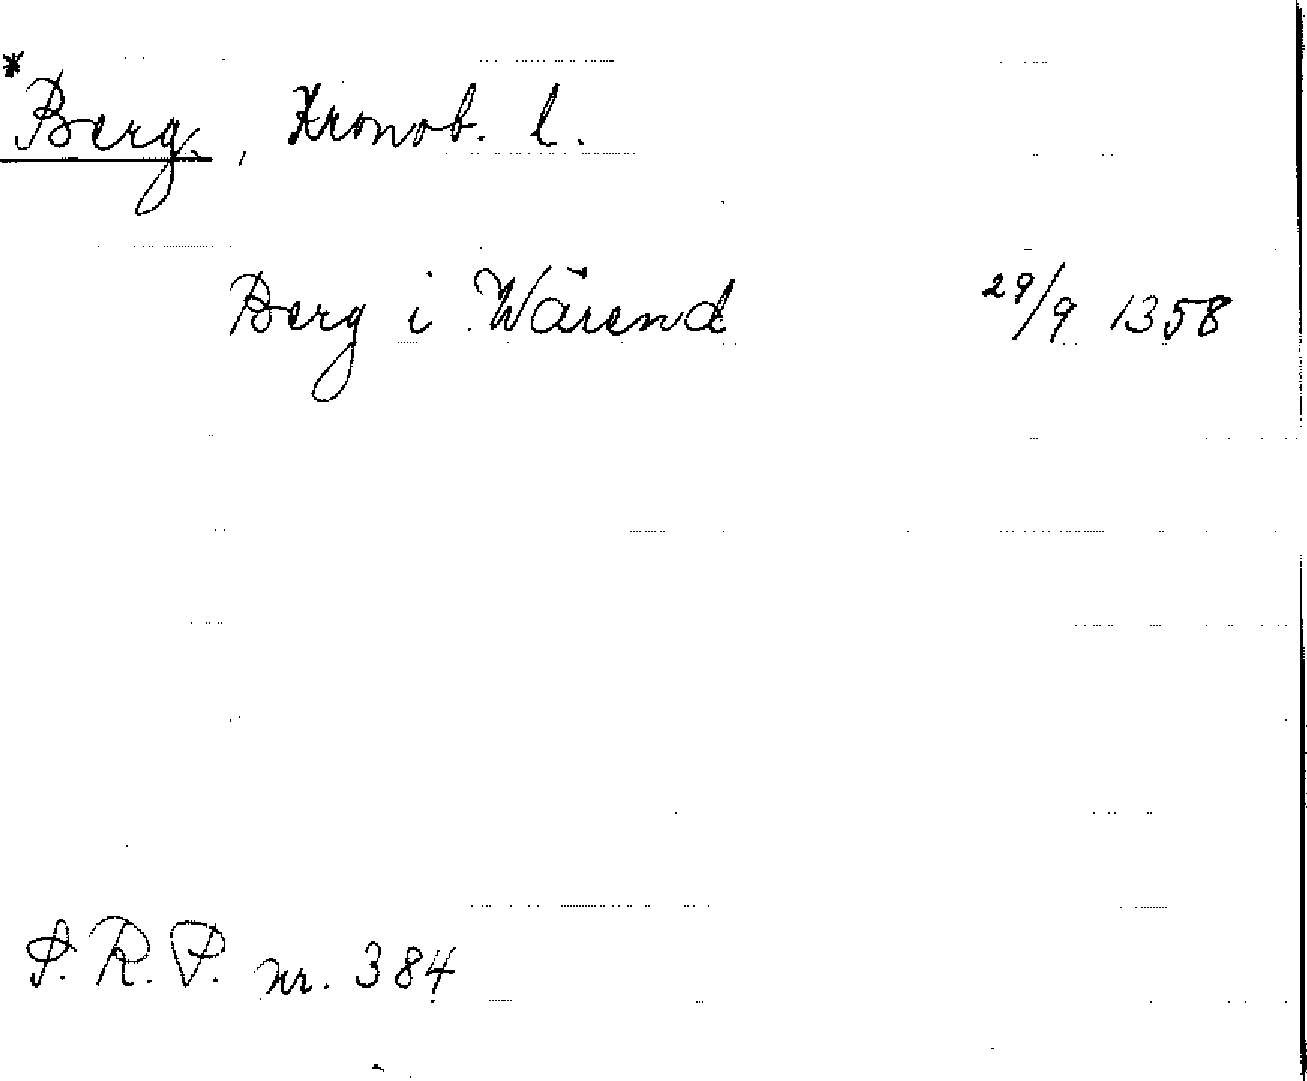 *Berg, Kronob. l.
Berg i Wärend 29/9 1358
S. R. P. nr. 384